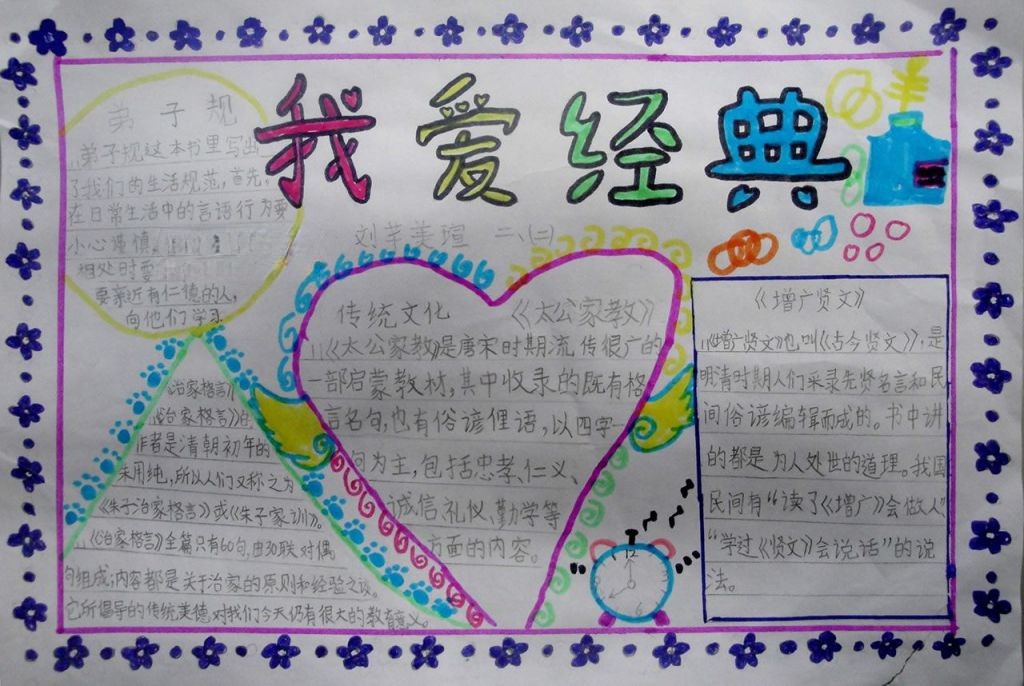 我爱经典
刘芊美瑄 二、(二)
弟子规
弟子规这本书里写出
了我们的生活规范,首先,
在日常生活中的言语行为要
小心谨慎
相处时要
要亲近有仁德的人,
向他们学习
《治家格言》
《治家格言》的
作者是清朝初年的
朱用纯,所以人们又称之为
《朱子治家格言》或《朱子家训》。
《治家格言》全篇只有60句,由30联对偶
句组成;内容都是关于治家的原则和经验之谈。
它所倡导的传统美德对我们今天仍有很大的教育意义。
传统文化 《太公家教》
《太公家教》是唐宋时期流传很广的
一部启蒙教材,其中收录的既有格
言名句,也有俗谚俚语,以四字一
句为主,包括忠孝、仁义、
诚信、礼仪、勤学等
方面的内容。
《增广贤文》
《增广贤文》也叫《古今贤文》,是
明清时期人们采录先贤名言和民
间俗谚编辑而成的。书中讲
的都是为人处世的道理。我国
民间有“读了《增广》会做人”
“学过《贤文》会说话”的说
法。
12
3
6
9